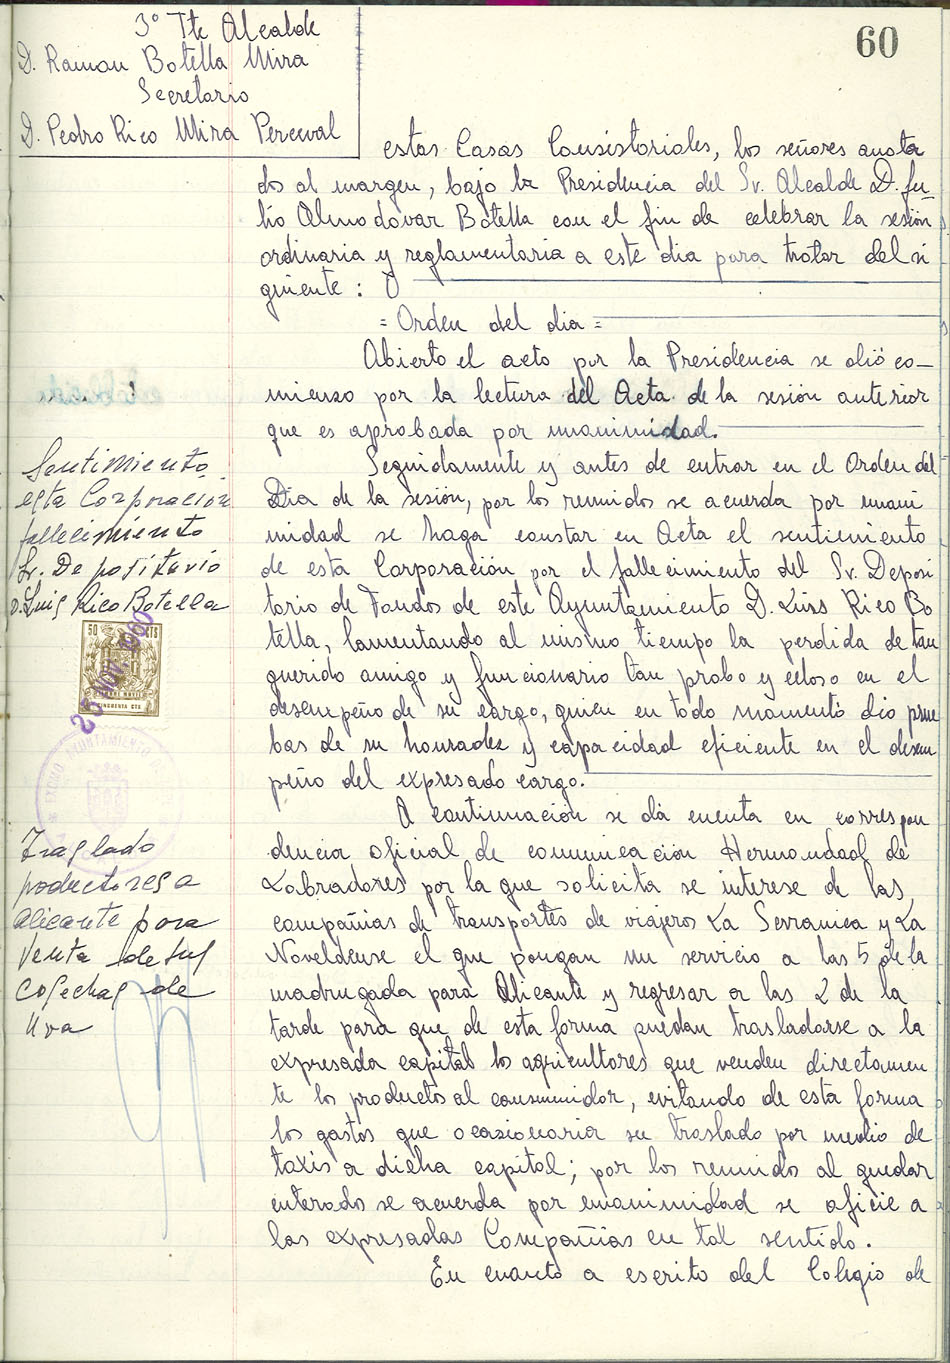 60
3º Tte Alcalde
D. Ramon Botella Mira
Secretario
D. Pedro Rico Mira Perceval
estas Casas Consistoriales, los señores anota
dos al margen, bajo la Presidencia del Sr. Alcalde D. Ju-
lio Almodovar Botella con el fin de celebrar la sesión
ordinaria y reglamentaria a este dia para tratar del si
guiente:
= Orden del dia =
Abierto el acto por la Presidencia se dió co-
mienzo por la lectura del Acta de la sesión anterior
que es aprobada por unanimidad.
Sentimiento
esta Corporación
fallecimiento
Sr. Depositario
D. Luis Rico Botella
Seguidamente y antes de entrar en el Orden del
Dia de la sesión, por los reunidos se acuerda por unani
midad se haga constar en Acta el sentimiento
de esta Corporación por el fallecimiento del Sr. Deposi
tario de Fondos de este Ayuntamiento D. Luis Rico Bo
tella, lamentando al mismo tiempo la perdida de tan
querido amigo y funcionario tan probo y celoso en el
desempeño de su cargo, quien en todo momento dio prue
bas de su honradez y capacidad eficiente en el desem
peño del expresado cargo.
50 CTS
CINCUENTA CTS
NOV. 1960
AYUNTAMIENTO DE
Traslado
productores a
Alicante para
venta de sus
cosechas de
Uva
A continuación se dá cuenta en correspon
dencia oficial de comunicación Hermandad de
Labradores por la que solicita se interese de las
compañias de transportes de viajeros La Serranica y La
Noveldense el que pongan un servicio a las 5 de la
madrugada para Alicante y regresar a las 2 de la
tarde para que de esta forma puedan trasladarse a la
expresada capital los agricultores que venden directamen
te los productos al consumidor, evitando de esta forma
los gastos que ocasionaria su traslado por medio de
taxis a dicha capital; por los reunidos al quedar
enterados se acuerda por unanimidad se oficie a
las expresadas Compañias en tal sentido.
En cuanto a escrito del Colegio de